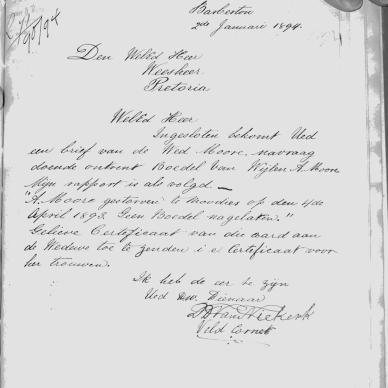 Barberton
2de Januari 1894.
Den WelEd Heer
Weesheer
Pretoria
WelEd Heer
Ingesloten bekomt Ued
een brief van de Wed Moore, navraag
doende omtrent Boedel van Wijlen A. Moore
Mijn rapport is als volgd. —
"A. Moore gestorven te Moodies op den 4de
April 1893. Geen Boedel nagelaten."
Gelieve Certificaat van die aard aan
de Weduwe toe te zenden i e Certificaat voor
her trouwen.
Ik heb de eer te zijn
Ued Dw. Dienaar
van Niekerk
Veld Cornet